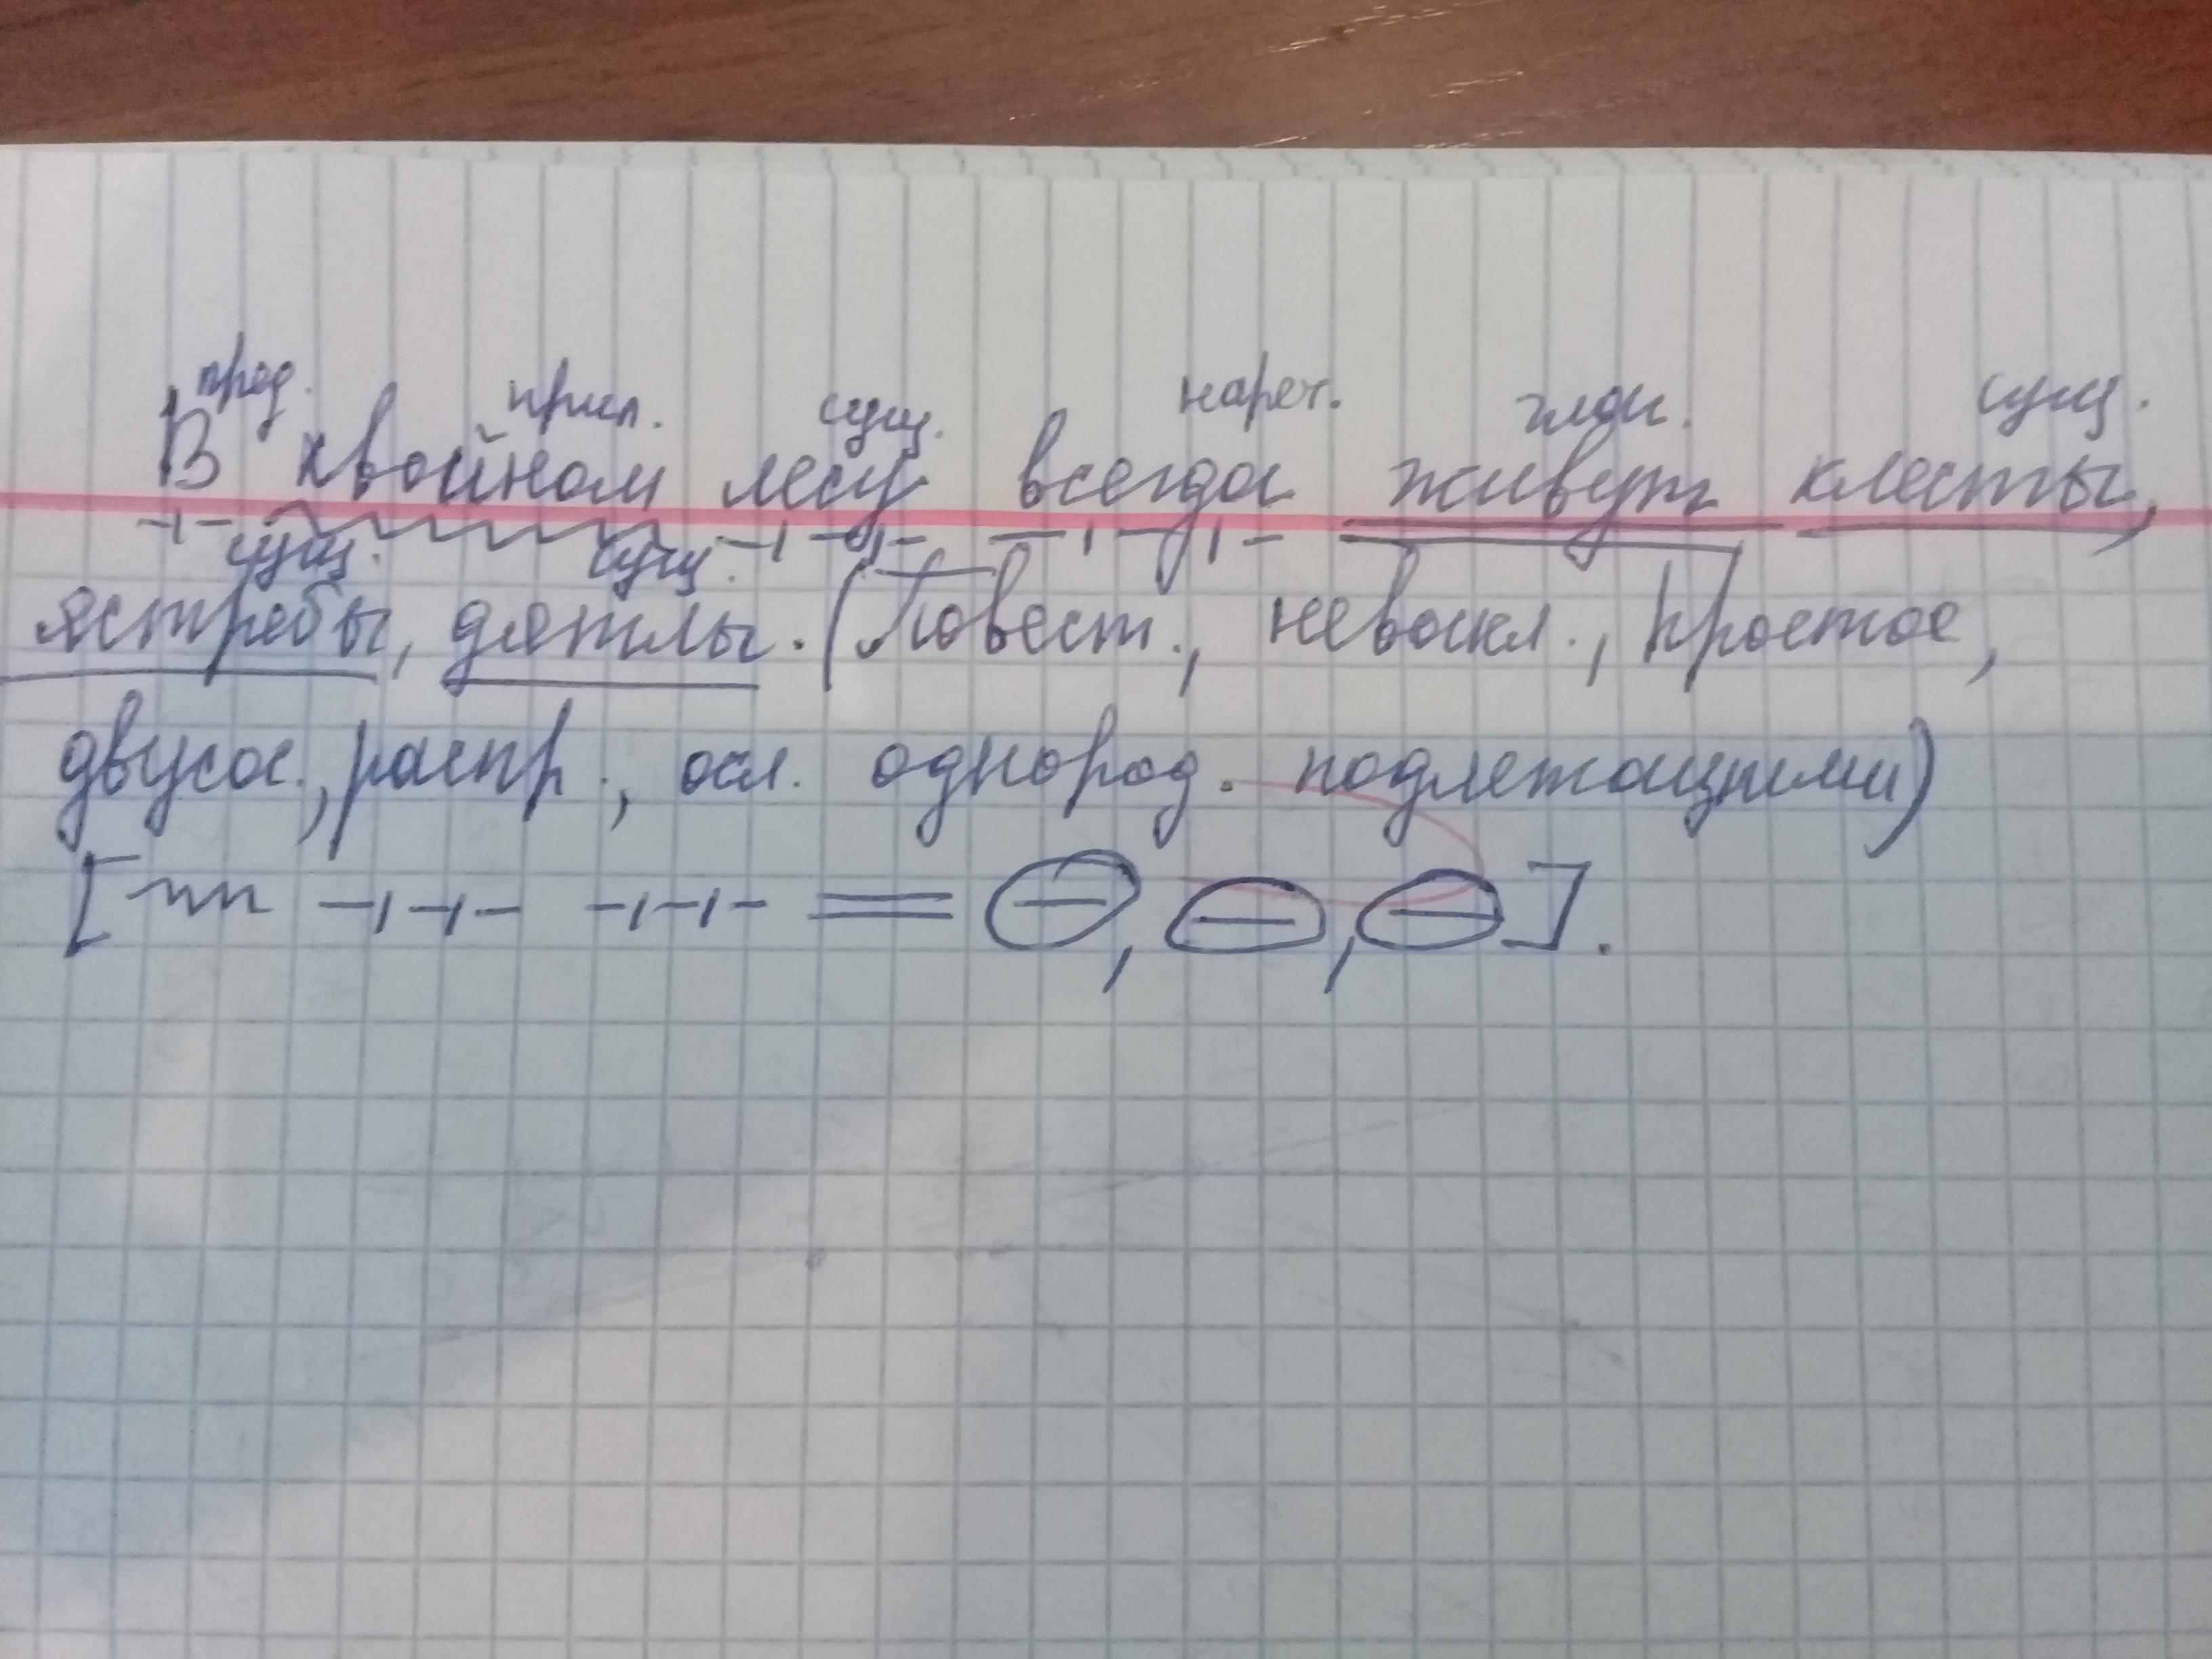 пред. прил. сущ. нареч. глаг. сущ.
В хвойном лесу всегда живут клесты,
сущ. сущ.
ястребы, дятлы. (Повест., невоскл., простое,
двусос., распр., осл. однород. подлежащими)
[ ], , .